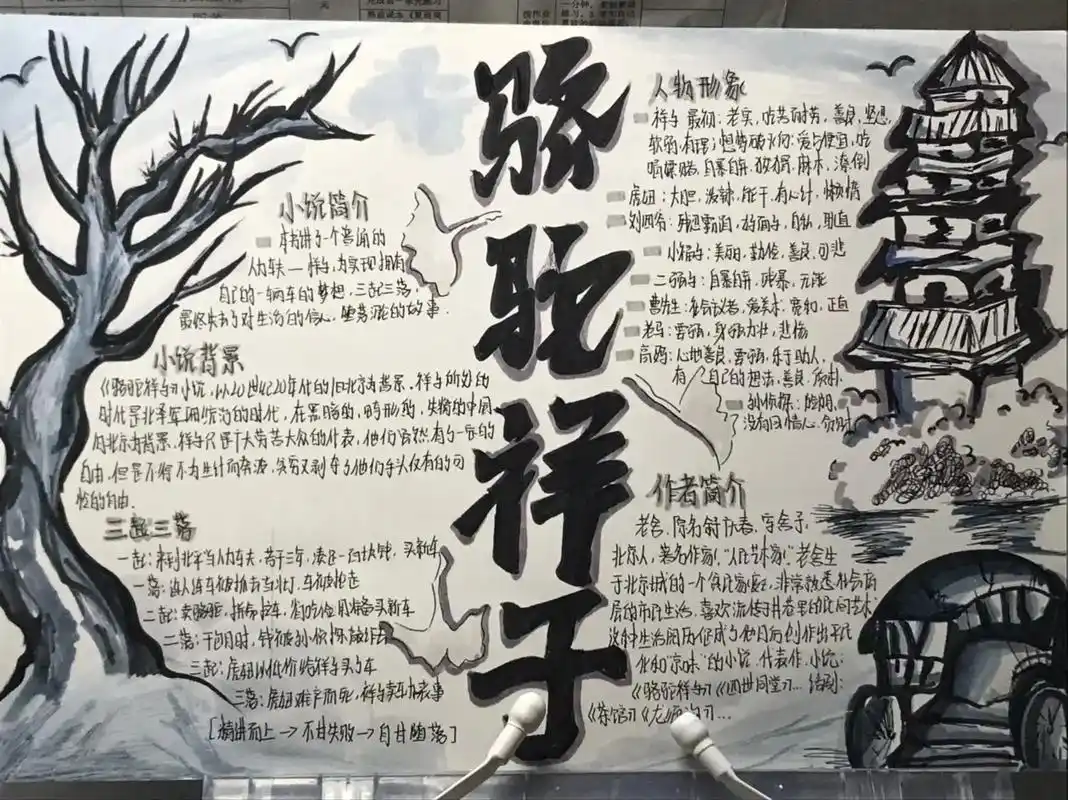 骆驼祥子
小说简介
本书讲了一个普通的
人力车夫——祥子,为实现拥有
自己的一辆车的梦想,三起三落,
最终失去了对生活的信心,堕落的故事.
小说背景
《骆驼祥子》小说,以20世纪20年代的旧北京为背景,祥子所处的
时代是北洋军阀统治的时代,在黑暗的,畸形的,失衡的中国
旧北京为背景,祥子只是广大劳苦大众的代表,他们虽然有了一定的
自由,但是不得不为生计而奔波,贫穷又剥夺了他们手头仅有的可
怜的自由.
三起三落
一起:来到北平当人力车夫,苦干三年,凑足一百块钱,买新车
一落:连人带车被抓,车被抢走
二起:卖骆驼,拼命拉车,省吃俭用准备买新车
二落:干包月时,钱被孙侦探敲诈去
三起:虎妞以低价给祥子买了车
三落:虎妞难产而死,祥子卖车办丧事
[精进向上→不甘失败→自甘堕落]
人物形象
祥子 最初:老实,吃苦耐劳,善良,坚忍,
喝嫖赌,自暴自弃,狡猾,麻木,潦倒
虎妞:大胆,泼辣,能干,有心计,懒惰
刘四爷:残忍霸道,好面子,自私,耿直
小福子:美丽,勤俭,善良,可悲
二强子:自暴自弃,残暴,无能
曹先生:社会议者,爱美术,宽和,正直
老马:要强,身强力壮,悲惨
高妈:心地善良,要强,乐于助人,
有自己的想法,善良,质朴.
孙侦探:
没有同情心,
作者简介
老舍,原名舒庆春,字舍予,
北京人,著名作家,“人民艺术家”老舍生
于北京城的一个贫民家庭,非常熟悉社会底
层的市民生活,喜欢流传于市井巷里的民间艺术
这种生活阅历促成了他日后创作出平民
化和“京味”的小说,代表作,小说:
《骆驼祥子》《四世同堂》... 话剧:
《茶馆》《龙须沟》...